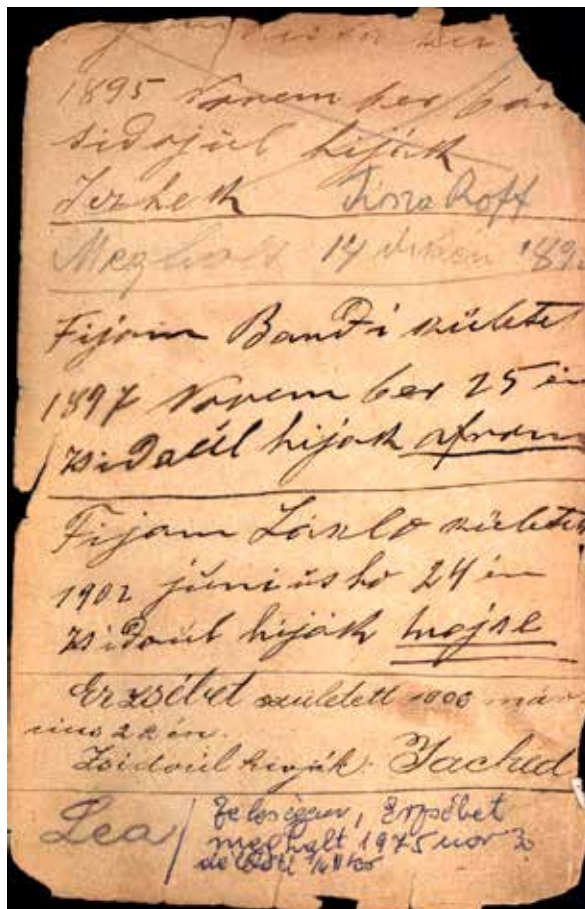 1895 November
sidojul hiják
Tisza Roff
Meghalt 14
Fijam Bandi születet
1897 November 25 én
zsidaúl hijak
Fijam László születet
1902 június hó 24 én
zsidoúl hiják mojse
Erzsébet született 1900 már
cius 2 án.
Zsidoúl hivják
Lea
feleségem, Erzsébet
meghalt 1975 nov 3